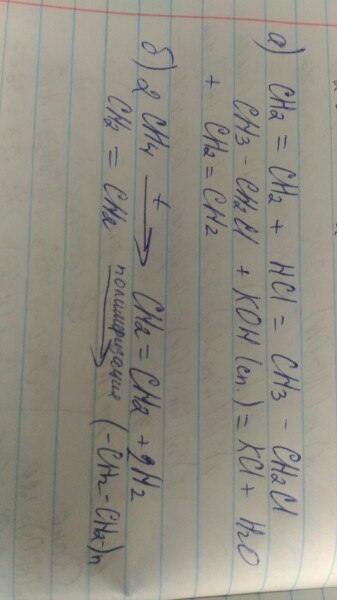 а) CH2 = CH2 + HCl = CH3 - CH2Cl
CH3 - CH2Cl + KOH (сп.) = KCl + H2O
+ CH2 = CH2
б) 2 CH4 t→ CH2 = CH2 + 2H2
CH2 = CH2 полимеризация→ (-CH2-CH2-)n